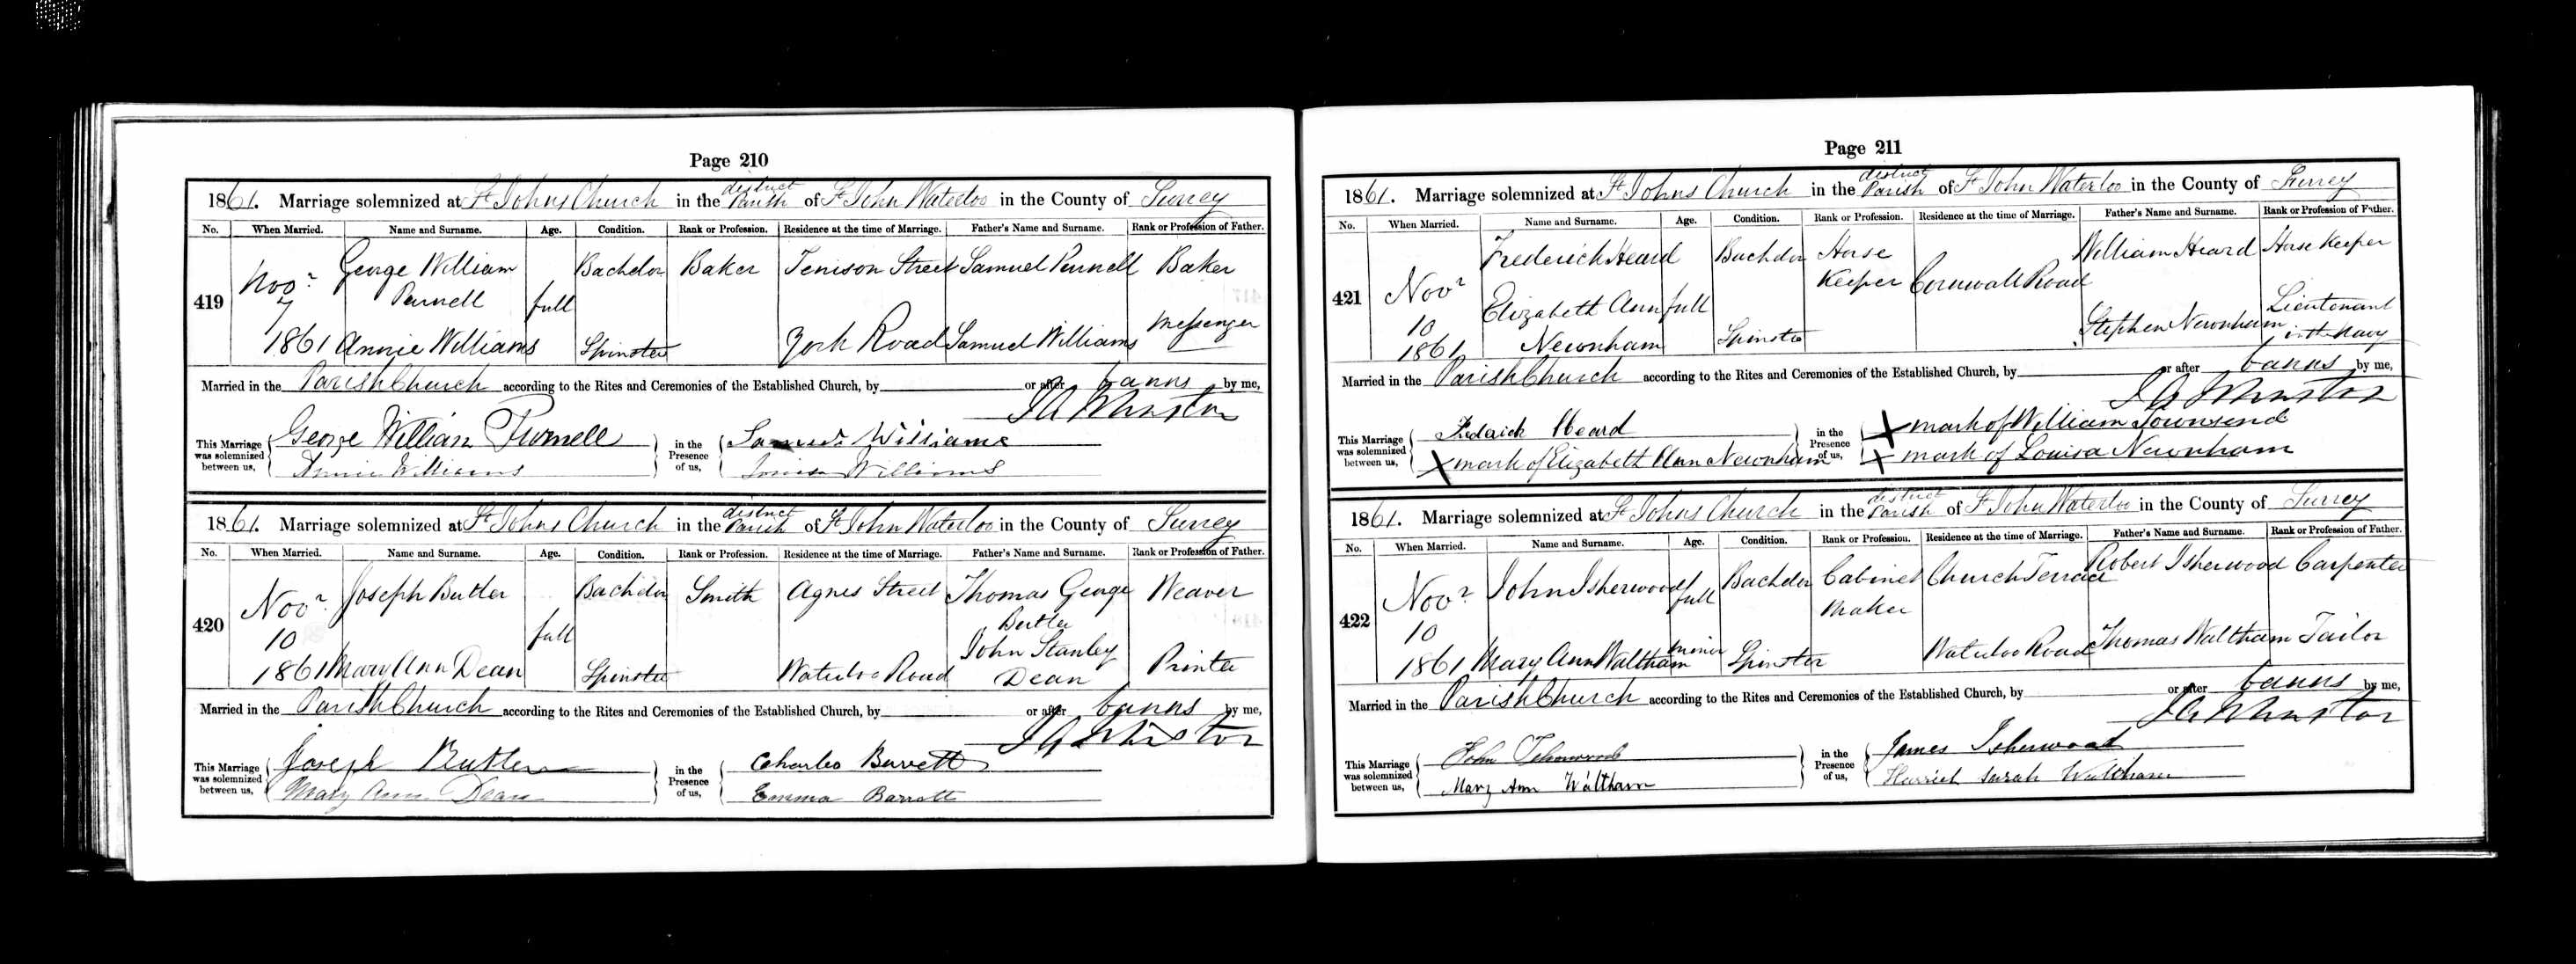 Page 210
1861. Marriage solemnized at St Johns Church in the district Parish of St John Waterloo in the County of Surrey
No. When Married. Name and Surname. Age. Condition. Rank or Profession. Residence at the time of Marriage. Father's Name and Surname. Rank or Profession of Father.
419 Novr 7 1861 George William Purnell full Bachelor Baker Tenison Street Samuel Purnell Baker
Annie Williams Spinster York Road Samuel Williams Messenger
Married in the Parish Church according to the Rites and Ceremonies of the Established Church, by or after banns by me,
J A Johnston
This Marriage was solemnized between us, George William Purnell in the Presence of us, Samuel Williams
Annie Williams Louisa Williams
1861. Marriage solemnized at St Johns Church in the district Parish of St John Waterloo in the County of Surrey
No. When Married. Name and Surname. Age. Condition. Rank or Profession. Residence at the time of Marriage. Father's Name and Surname. Rank or Profession of Father.
420 Novr 10 1861 Joseph Butler full Bachelor Smith Agnes Street Thomas George Butler Weaver
Mary Ann Dean Spinster Waterloo Road John Stanley Dean Printer
Married in the Parish Church according to the Rites and Ceremonies of the Established Church, by or after banns by me,
J A Johnston
This Marriage was solemnized between us, Joseph Butler in the Presence of us, Charles Barrett
Mary Ann Dean Emma Barrett
Page 211
1861. Marriage solemnized at St Johns Church in the district Parish of St John Waterloo in the County of Surrey
No. When Married. Name and Surname. Age. Condition. Rank or Profession. Residence at the time of Marriage. Father's Name and Surname. Rank or Profession of Father.
421 Novr 10 1861 Frederich Heard full Bachelor Horse Keeper Cornwall Road William Heard Horse Keeper
Elizabeth Ann Newnham Spinster Stephen Newnham Lieutenant in the Navy
Married in the Parish Church according to the Rites and Ceremonies of the Established Church, by or after banns by me,
J A Johnston
This Marriage was solemnized between us, Frederick Heard in the Presence of us, X mark of William Townsend
X mark of Elizabeth Ann Newnham X mark of Louisa Newnham
1861. Marriage solemnized at St Johns Church in the district Parish of St John Waterloo in the County of Surrey
No. When Married. Name and Surname. Age. Condition. Rank or Profession. Residence at the time of Marriage. Father's Name and Surname. Rank or Profession of Father.
422 Novr 10 1861 John Isherwood full Bachelor Cabinet Maker Church Terrace Robert Isherwood Carpenter
Mary Ann Waltham minor Spinster Waterloo Road Thomas Waltham Tailor
Married in the Parish Church according to the Rites and Ceremonies of the Established Church, by or after banns by me,
J A Johnston
This Marriage was solemnized between us, John Isherwood in the Presence of us, James Isherwood
Mary Ann Waltham Harriet Sarah Waltham